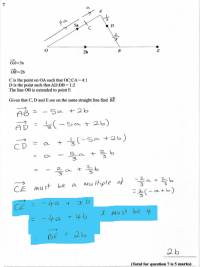 7
a
A
4a
5a
C
D
O
2b
B
E
OA=5a
OB=2b
C is the point on OA such that OC:CA = 4:1
D is the point such that AD:DB = 1:2
The line OB is extended to point E
Given that C, D and E are on the same straight line find BE
AB = -5a + 2b
AD = 1/3(-5a + 2b)
CD = a + 1/3(-5a + 2b)
= a - 5/3 a + 2/3 b
= -2/3 a + 2/3 b
CE must be a multiple of -2/3 a + 2/3 b
= 2/3(-a+b)
CE = -4a + xb
= -4a + 4b x must be 4
BE = 2b
2b
(Total for question 7 is 5 marks)